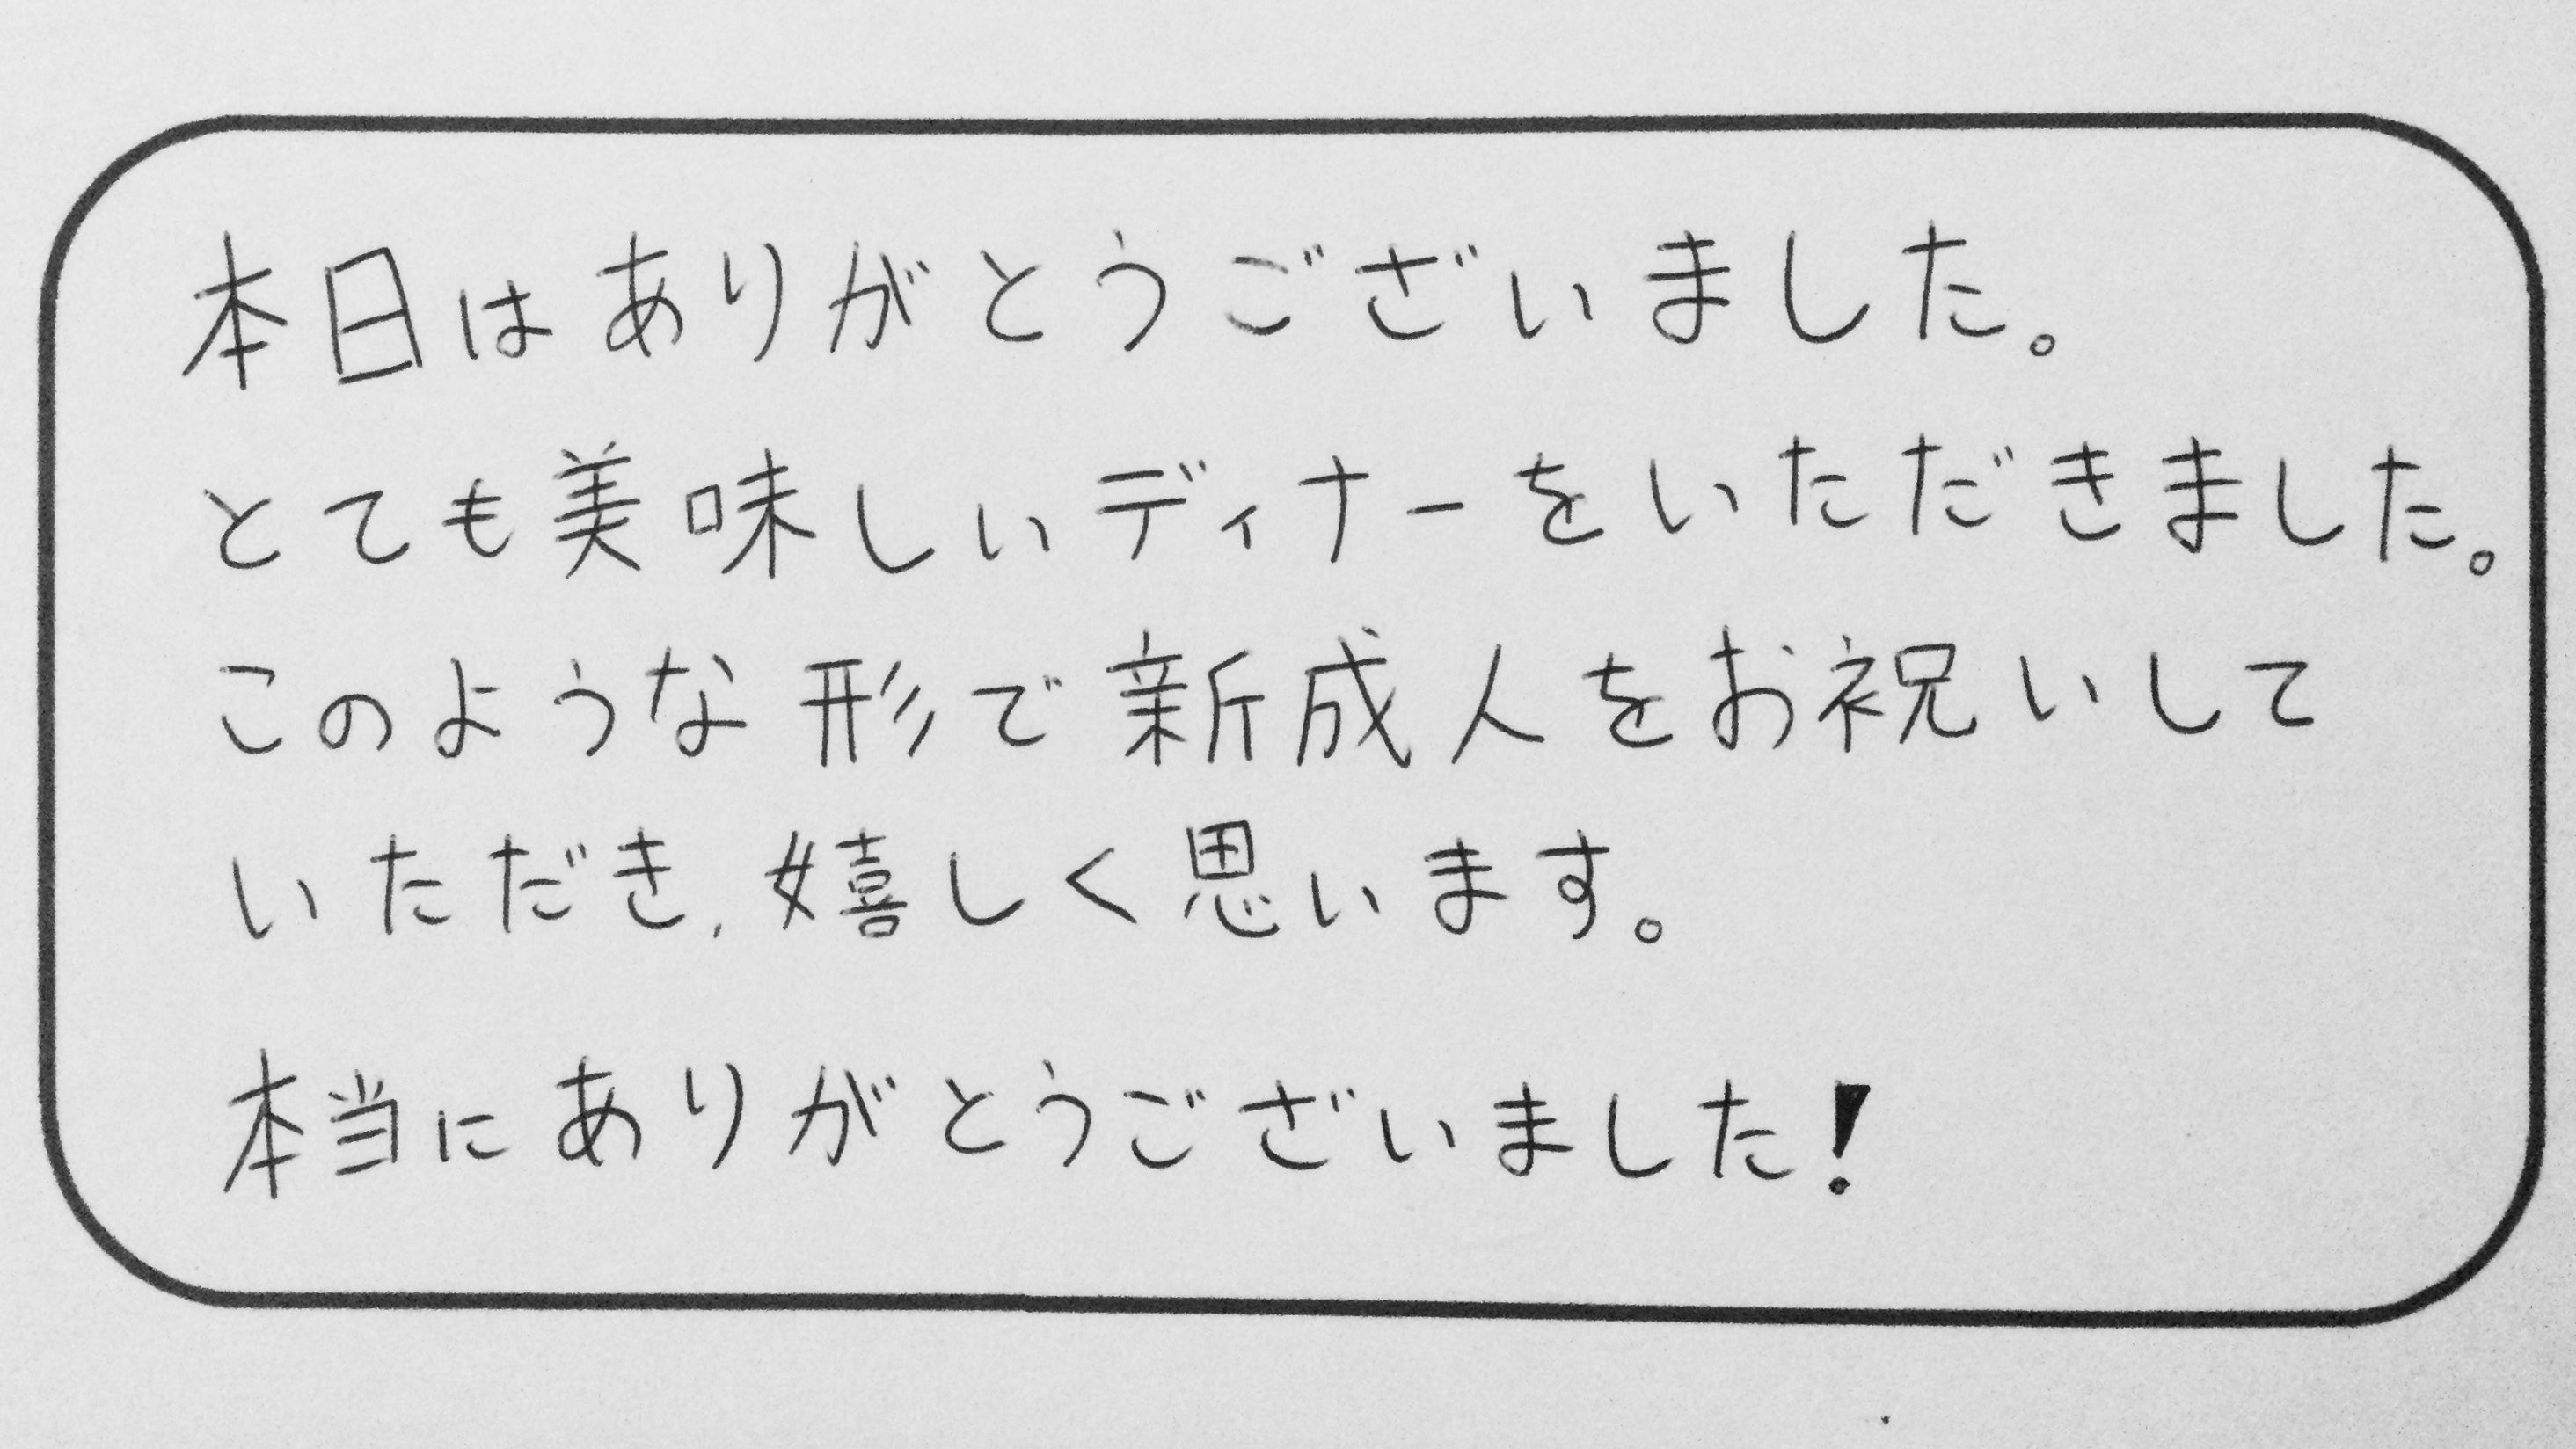 本日はありがとうございました。
とても美味しいディナーをいただきました。
このような形で新成人をお祝いして
いただき、嬉しく思います。
本当にありがとうございました!